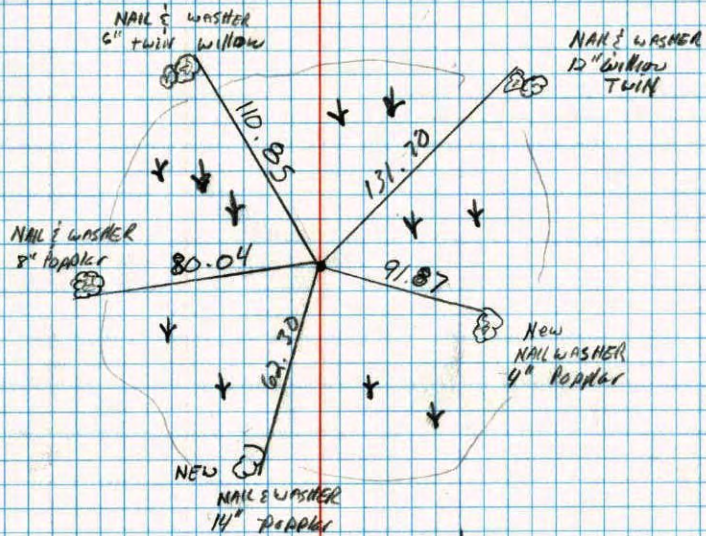 NAIL & WASHER
6" twin willow
NAIL & WASHER
12" willow
TWIN
110.85
131.70
NAIL & WASHER
8" Poppler
80.04
91.87
62.30
New
NAIL WASHER
4" Poppler
NEW
NAIL & WASHER
14" Poppler